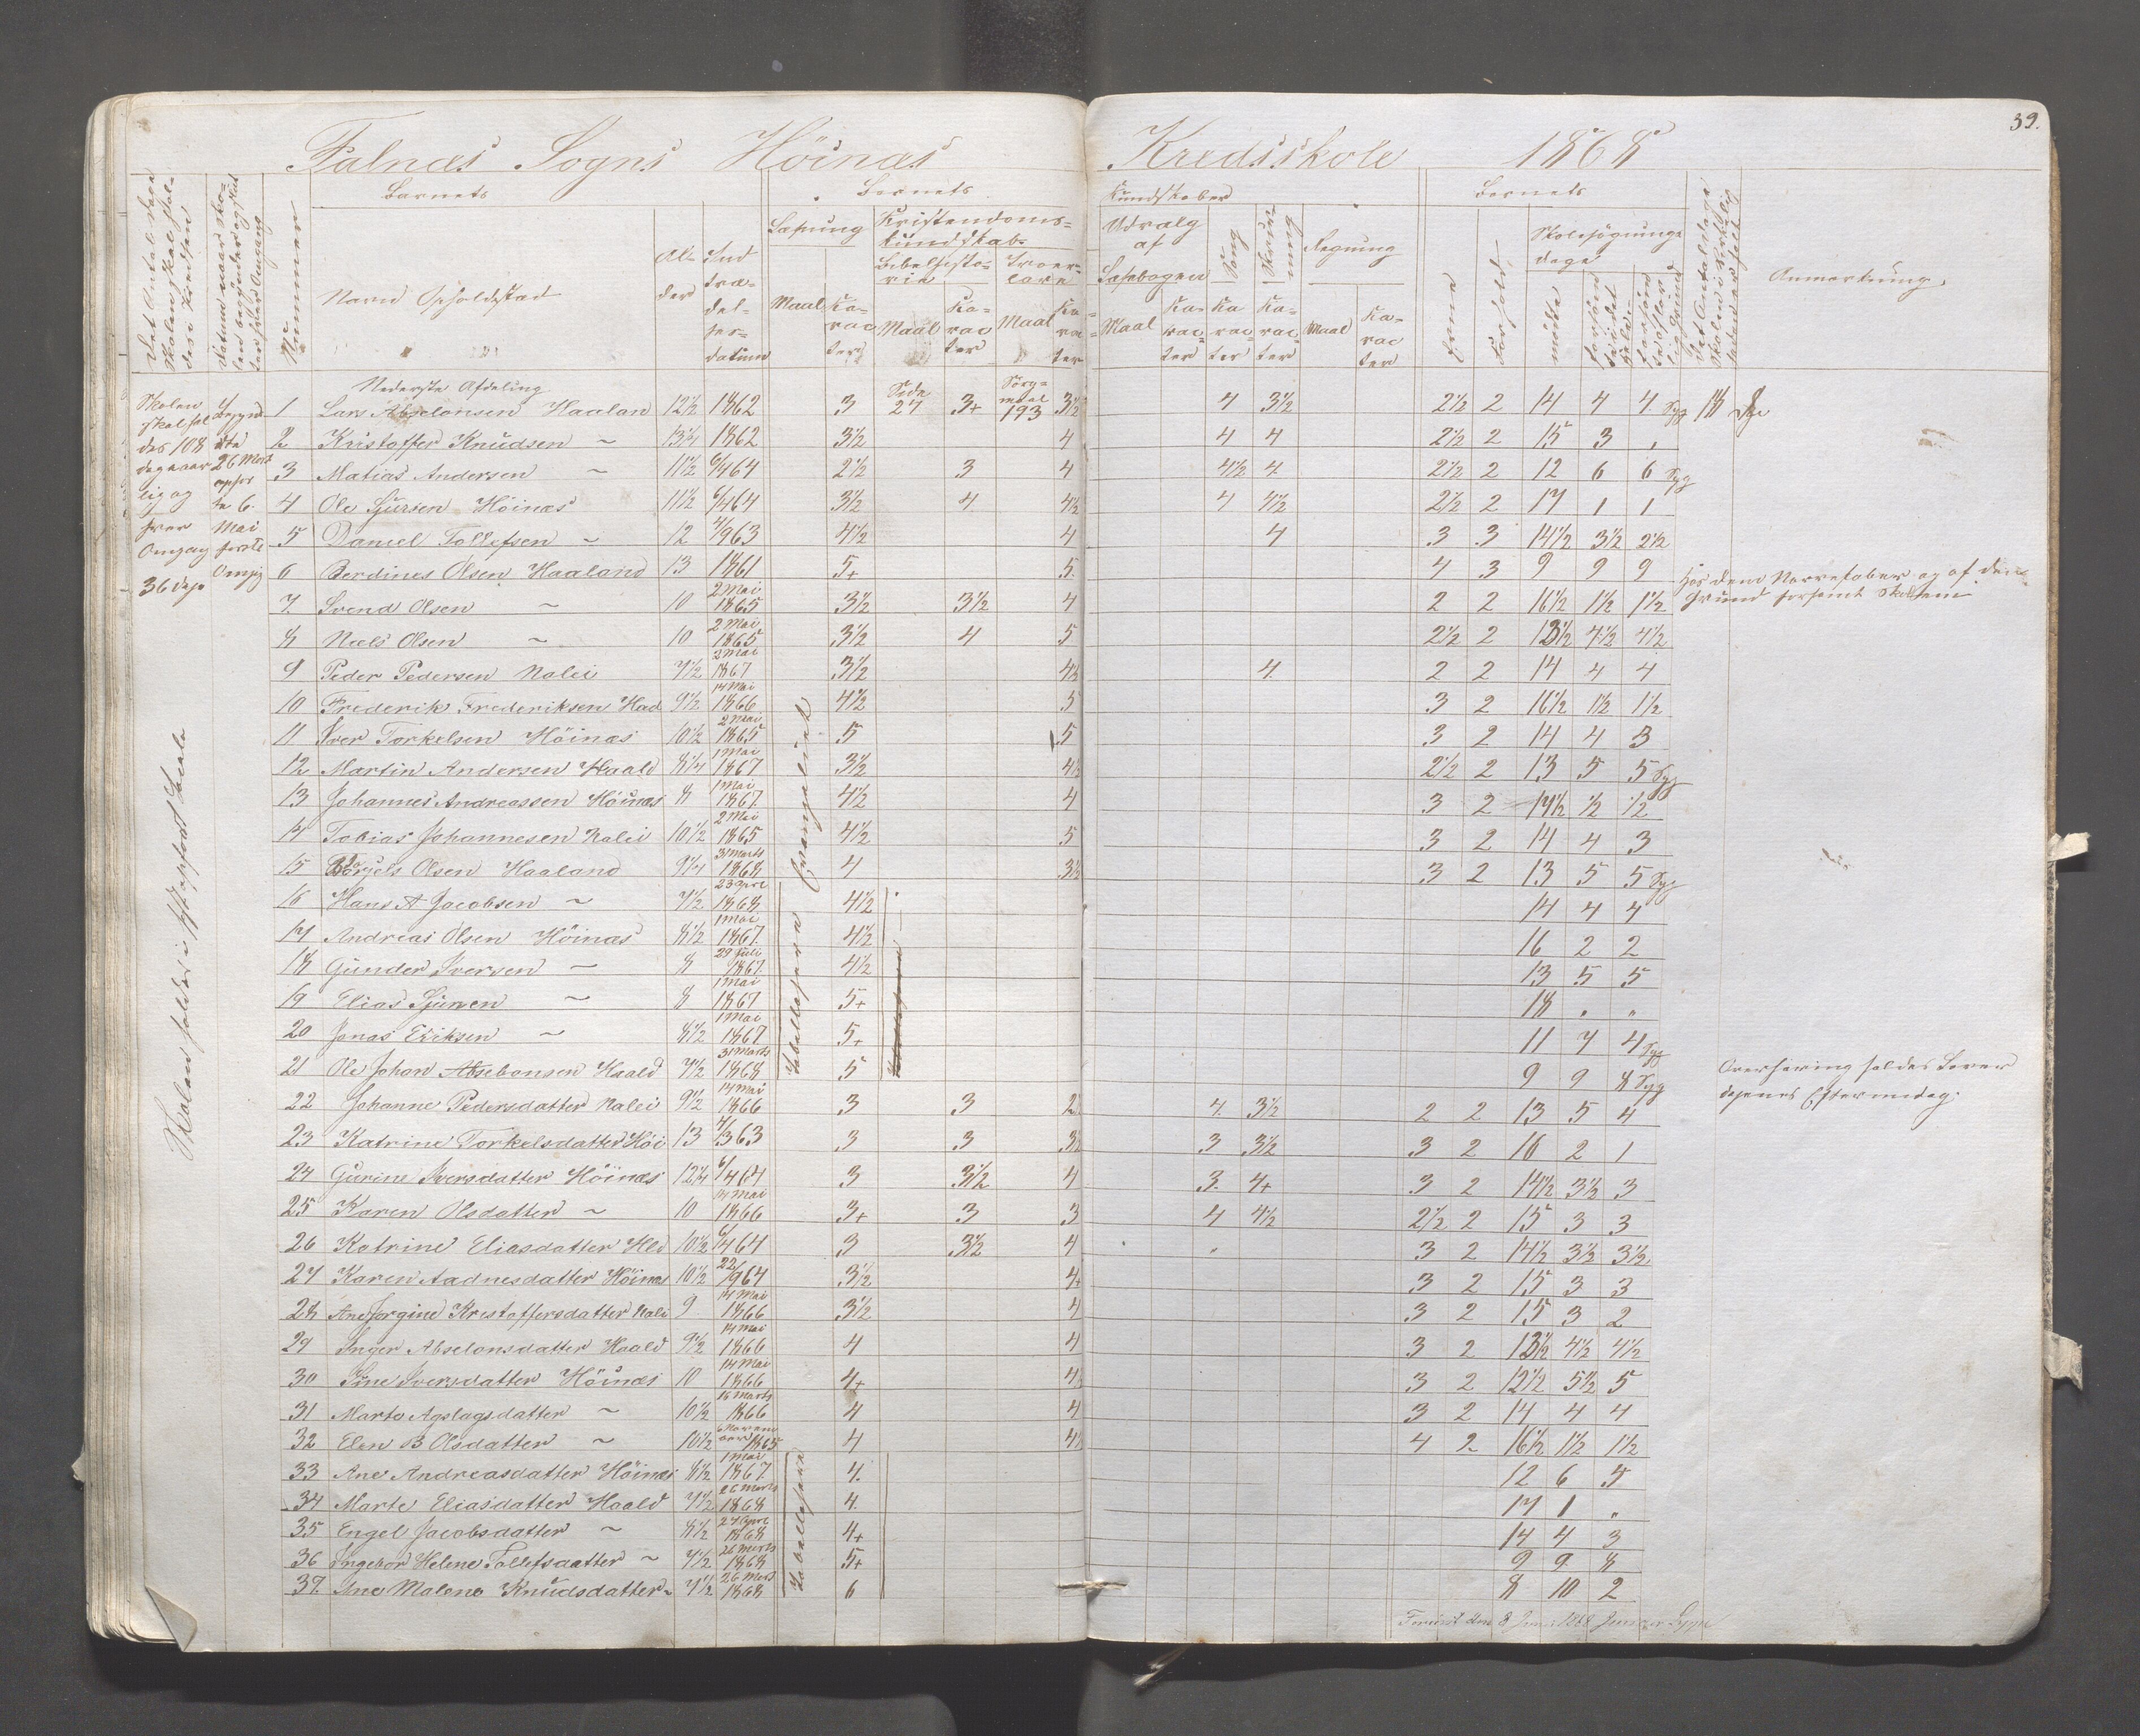 39.
Falnæs Sogns Höinæs Kredsskole 1868
Barnets Barnets Kundskaber Barnets
Det Antal Dage Skolen skal holdes i Kredsen
Nummer
Navn Opholdssted
Alder
Indtrædelsesdatum
Læsning
Maal
Karacter
Kristendomskundskab
Bibelhistorie
Maal
Karacter
Troeslære
Maal
Karacter
Udvalg af Læsebogen
Maal
Karacter
Sang
Karacter
Skrivning
Karacter
Regning
Maal
Karacter
Evne
Forhold
Skolesøgningsdage
mødte
Anmærkning.
Skolen skal holdes 108 dage aarlig og hver Omgang 36 dage
begyndte 26 Marts ophørte 6. Mai første Omgang
Nederste Afdeling
1 Lars Abselonsen Haaland 12½ 1862 3 Side 27 3+ 193 3½ 4 3½ 2½ 2 14 4 4 Syg 18 Dge
2 Kristoffer Knudsen ~ 13¼ 1862 3½ 4 4 4 2½ 2 15 3 ,
3 Matias Andersen ~ 11½ 6/4 64 2½ 3 4 4½ 4 2½ 2 12 6 6 Syg
4 Ole Sjursen Höinæs 11½ 6/4 64 3½ 4 4½ 4 4½ 2½ 2 17 1 1
5 Daniel Tollefsen ~ 12 4/9 63 4½ 4 4 3 3 14½ 3½ 2½
6 Berdines Olsen Haaland 13 1861 5+ 5. 4 3 9 9 9
7. Svend Olsen ~ 10 2 Mai 1865 3½ 3½ 4 2 2 16½ 1½ 1½
8 Niels Olsen ~ 10 2 Mai 1865 3½ 4 5 2½ 2 13½ 4½ 4½
9 Peder Pedersen Nalei 7½ 2 Mai 1867 3½ 4½ 4. 2 2 14 4 4
10 Frederik Frederiksen Haad 9½ 14 Mai 1866 4½ 5 3 2 16½ 1½ 1½
11 Iver Torkelsen Höinæs 10½ 2 Mai 1865 5 5 3 2 14 4 3
12 Martin Andersen Haald 8¼ 1 Mai 1867 3½ 4½ 2½ 2 13 5 5 Syg
13 Johannes Andreassen Höinæs 8 1 Mai 1867 4½ 4 3 2 17½ ½ ½
14 Tobias Johannesen Nalei 10½ 2 Mai 1865 4½ 5 3 2 14 4 3
15 Olsen Haaland 9¼ 31 Marts 1868 4 3½ 3 2 13 5 5 Syg
16 Hans A Jacobsen ~ 7½ 1868 4½ 14 4 4
17 Andreas Olsen Höinæs 8½ 1 Mai 1867. 4½ 16 2 2
18 Gunder Iversen ~ 8 29 Juli 1867. 4½ 13 5 5
19 Elias Sjursen ~ 8 1 Mai 1867 5+ 18 „ „
20 Jonas Eriksen ~ 8½ 1 Mai 1867 5+ 11 7 4 Syg
21 Ole Johan Abselonsen Haald 7½ 31 Marts 1868 5 9 9 8 Syg
22 Johanne Pedersdatter Nalei 9½ 14 Mai 1866 3 3 2½ 4. 3½ 2 2 13 5 4
23 Katrine Torkelsdatter Höi 13 1/3 63 3 3 3½ 3 3½ 3 2 16 2 1
24 Gurine Iversdatter Höinæs 12¼ 6/4 64 3 3½ 4 3. 4+ 3 2 14½ 3½ 3
25 Karen Olsdatter ~ 10 14 Mai 1866 3+ 3 3 4 4½ 2½ 2 15 3 3
26 Katrine Eliasdatter Hld 10½ 6/4 64 3 3½ 4 3 2 14½ 3½ 3½
27 Karen Aadnesdatter Höinæs 10½ 22/9 64 3½ 4+ 3 2 15 3 3
28 Ane Jorgine Krestoffersdatter Nalei 9 14 Mai 1866 3½ 4 3 2 15 3 2
29 Inger Abselonsdatter Haald 9½ 14 Mai 1866 4 4 3 2 13½ 4½ 4½
30 Sine Iversdatter Höinæs 10 14 Mai 1866 4+ 4½ 3 2 12½ 5½ 5
31 Marta Agslagsdatter ~ 10½ 16 Marts 1866 4 4 3 2 14 4 4
32 Elen B Olsdatter ~ 10½ 1865 4 4½ 4 2 16½ 1½ 1½
33 Ane Andreasdatter Höinæs 8½ 1 Mai 1867 4. 12 6 5
34 Marte Eliasdatter Haald 7½ 26 Marts 1868 4. 17 1 „
35 Engel Jacobsdatter ~ 8½ 27 Apre 1868 4+ 14 4 3
36 Ingebor Helene Tollefsdatter ~ 7½ 26 Marts 1868 5+ 9 9 8
37. Ine Malene Knudsdatter ~ 7½ 26 Mart 1868 6 8 10 2
Evangeliet
Hos dem Nervefeber og af den
Grund forsømt Skolen
Overhøring holdes hver
dagenes Eftermidag.
1868